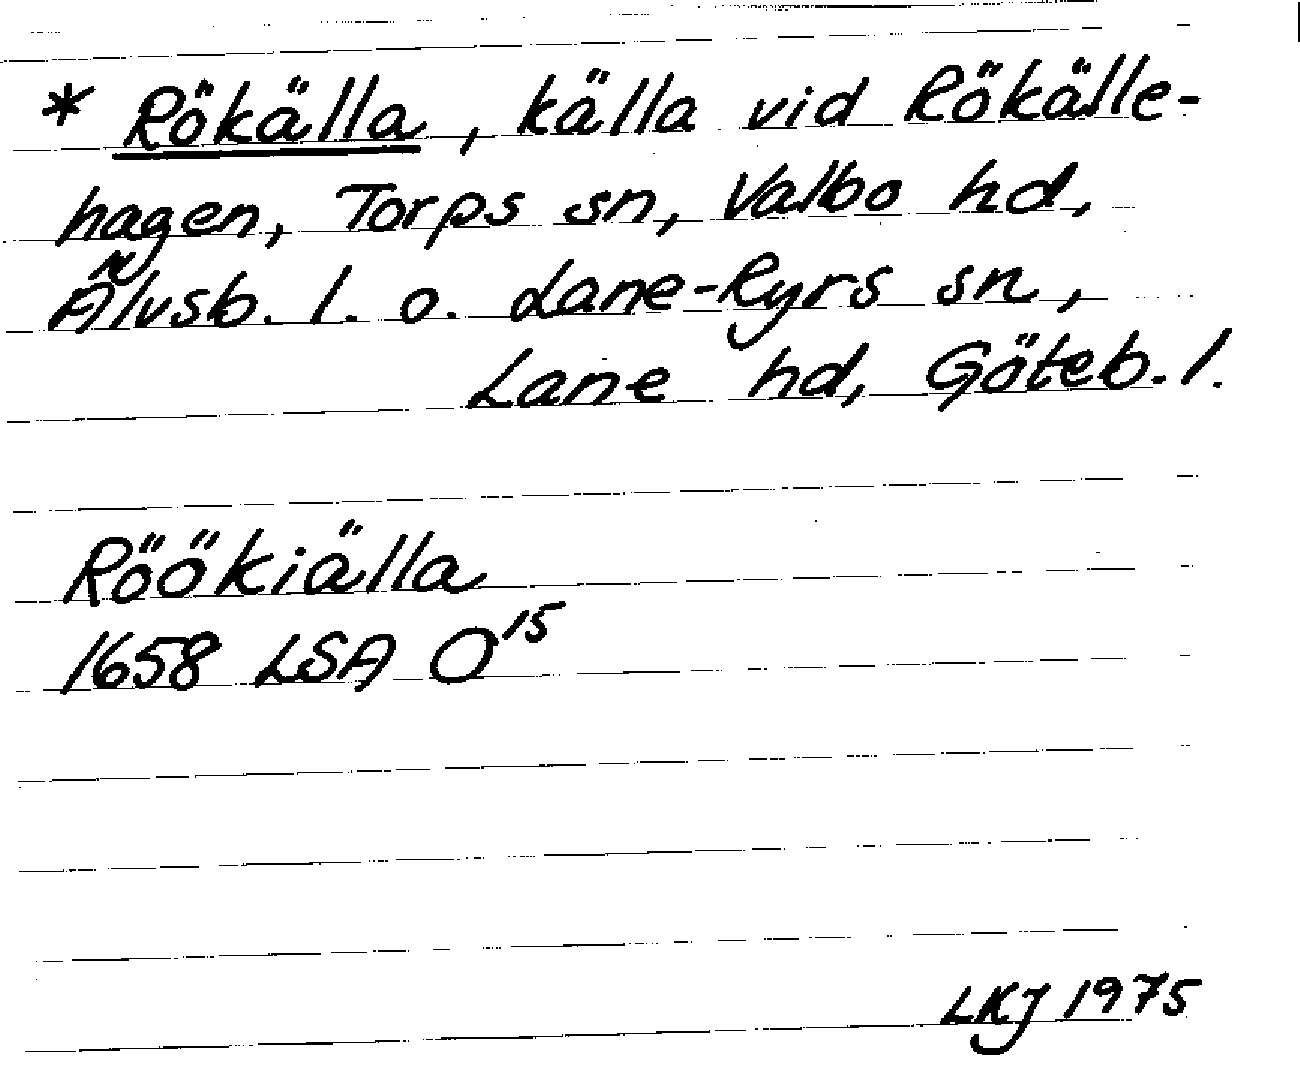 * Rökälla, källa vid Rökälle-
hagen, Torps sn, Valbo hd,
Älvsb. l. o. Lane-Ryrs sn,
Lane hd, Göteb. l.
Röökiälla
1658 LSA O¹⁵
LKJ 1975